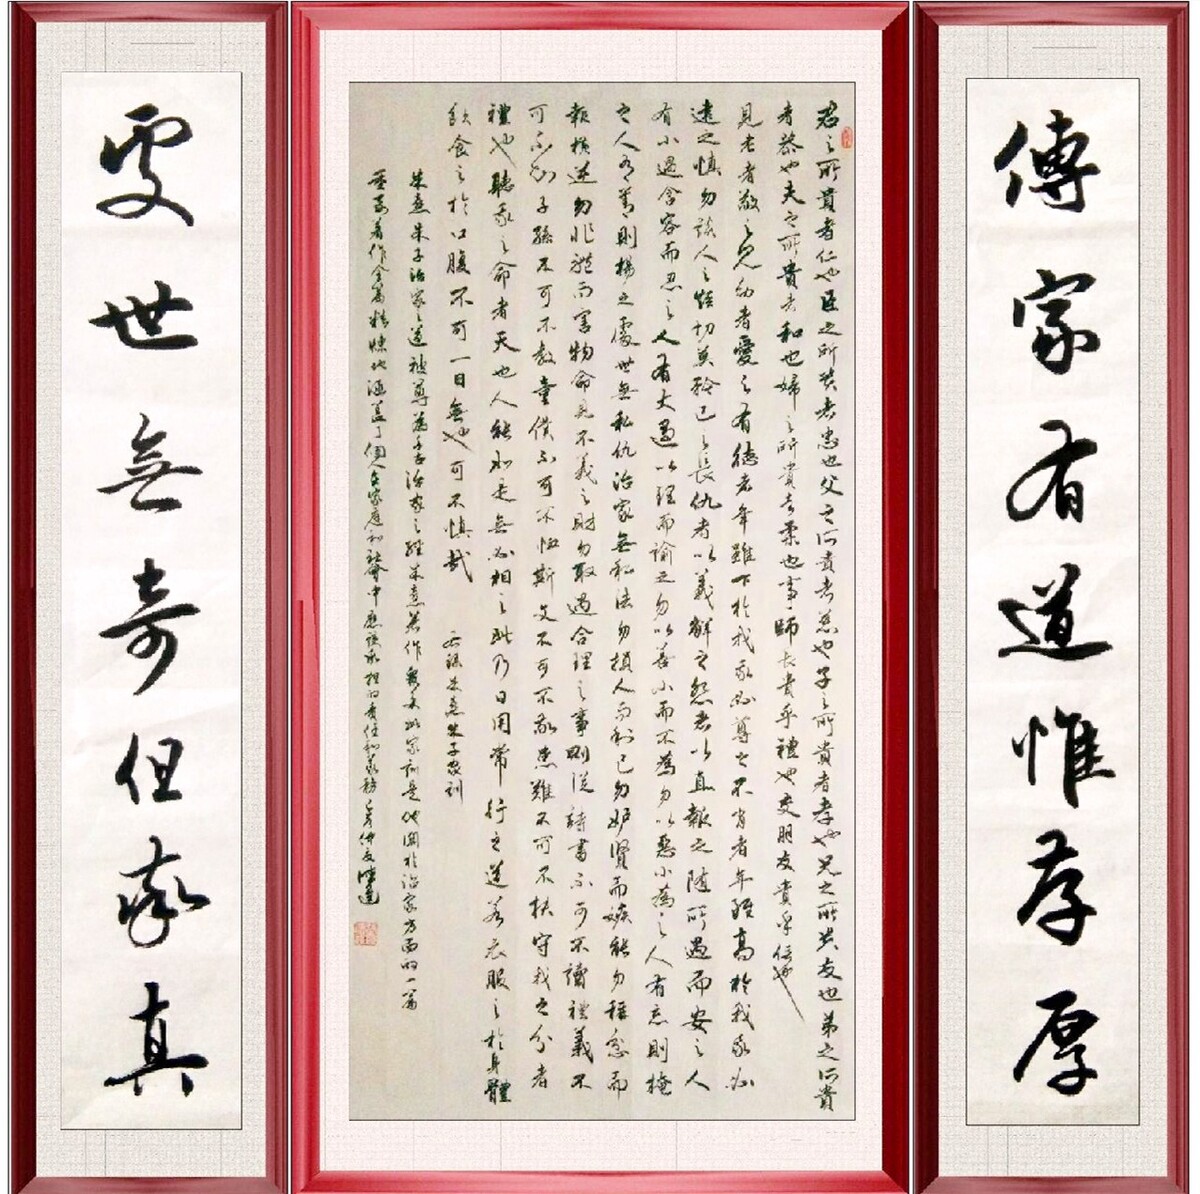 傳家有道惟存厚
君之所貴者仁也臣之所貴者忠也父之所貴者慈也子之所貴者孝也兄之所貴者友也弟之所貴
者恭也夫之所貴者和也婦之所貴者柔也事師長貴乎禮也交朋友貴乎信也
見老者敬之見幼者愛之有德者年雖下於我我必尊之不肖者年雖高於我我必
遠之慎勿談人之短切莫矜己之長仇者以義解之怨者以直報之隨所遇而安之人
有小過含容而忍之人有大過以理而諭之勿以善小而不為勿以惡小為之人有惡則掩
之人有善則揚之處世無私仇治家無私法勿損人而利己勿妒賢而嫉能勿稱忿而
報橫逆勿非禮而害物命見不義之財勿取遇合理之事則從詩書不可不讀禮義不
可不知子孫不可不教童僕不可不恤斯文不可不敬患難不可不扶守我之分者
禮也聽我之命者天也人能如是天必相之此乃日用常行之道若衣服之於身體
飲食之於口腹不可一日無也可不慎哉 朱熹朱子家訓
朱熹朱子治家之道被尊為千古治家之經朱熹著作甚多此家訓是他關於治家方面的一篇
重要著作全篇精煉地涵蓋了個人在家庭和社會中應該承担的責任和義務
處世無奇但率真